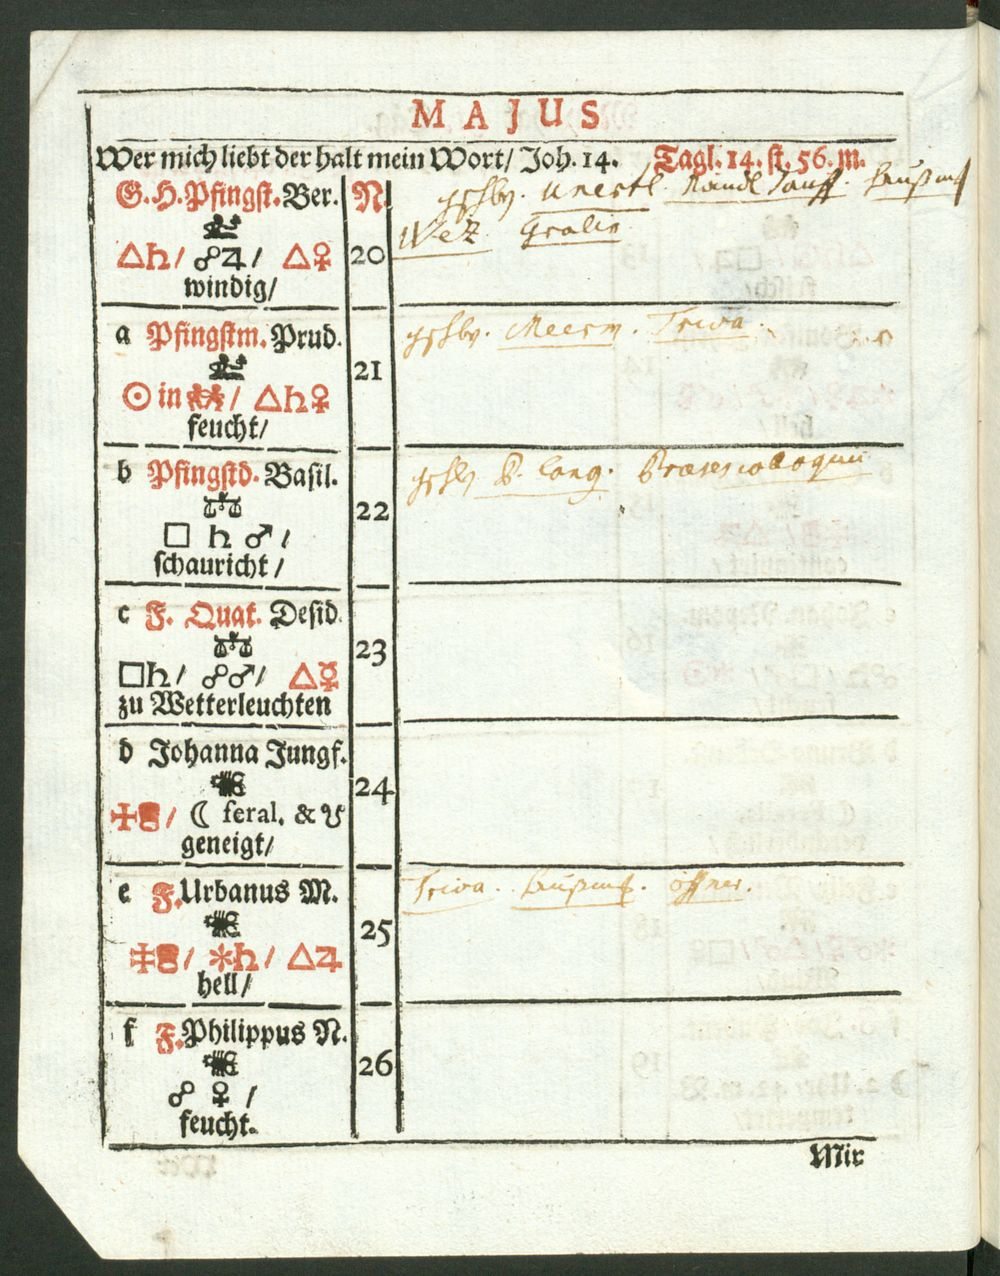 MAJUS
Wer mich liebt der halt mein Wort/ Joh. 14. Tagl. 14. st. 56. m.
G. H. Pfingst. Ber. N.
△♄/ ☍♃/ △♀ 20
windig/
a Pfingstm. Prud.
☉ in ♊/ △♄♀ 21
feucht/
Meerm. Triva.
b Pfingstd. Basil.
□ ♄ ♂ / 22
schauricht /
c F. Quat. Desid.
□♄/ ☍♂/ △☿ 23
zu Wetterleuchten
d Johanna Jungf.
☾ feral. & ☋ 24
geneigt/
e F. Urbanus M.
/ ✱♄/ △♃ 25
hell/
Triva.
f F. Philippus N.
☍ ♀ / 26
feucht.
Mir